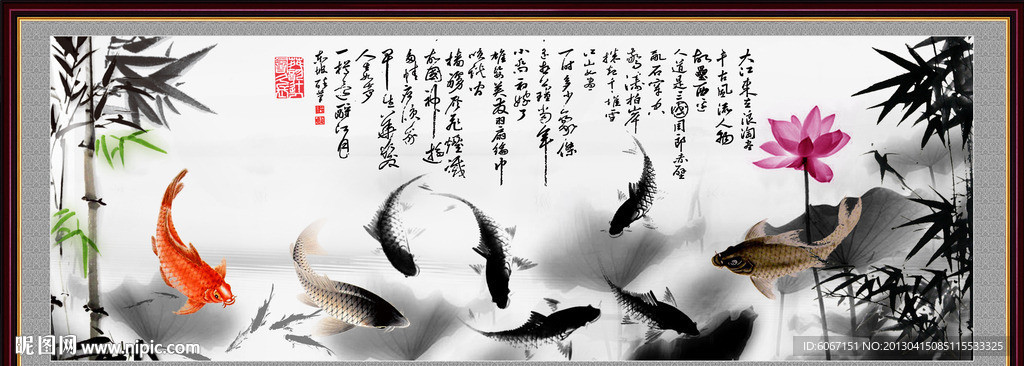 大江东去浪淘尽
千古风流人物
故垒西边
人道是三國周郎赤壁
乱石穿空
惊涛拍岸
捲起千堆雪
江山如画
一时多少豪傑
遥想公瑾当年
小乔初嫁了
雄姿英发羽扇纶巾
谈笑间
樯橹灰飞烟灭
故國神游
多情应笑我
早生华发
人生如梦
一樽还酹江月
昵图网 www.nipic.com
ID:6067151 NO:20130415085115533325